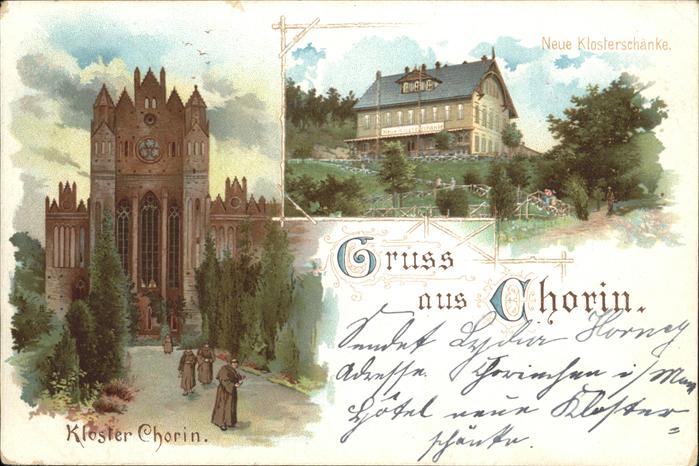 Neue Klosterschänke.
Gruss
aus Chorin.
Sendet Lydia Horney
Adresse. Chorinchen i/Mark
Hôtel neue Kloster-
schänke.
Kloster Chorin.